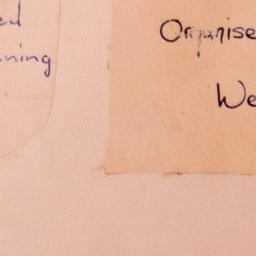 ed
ning
Organise
We